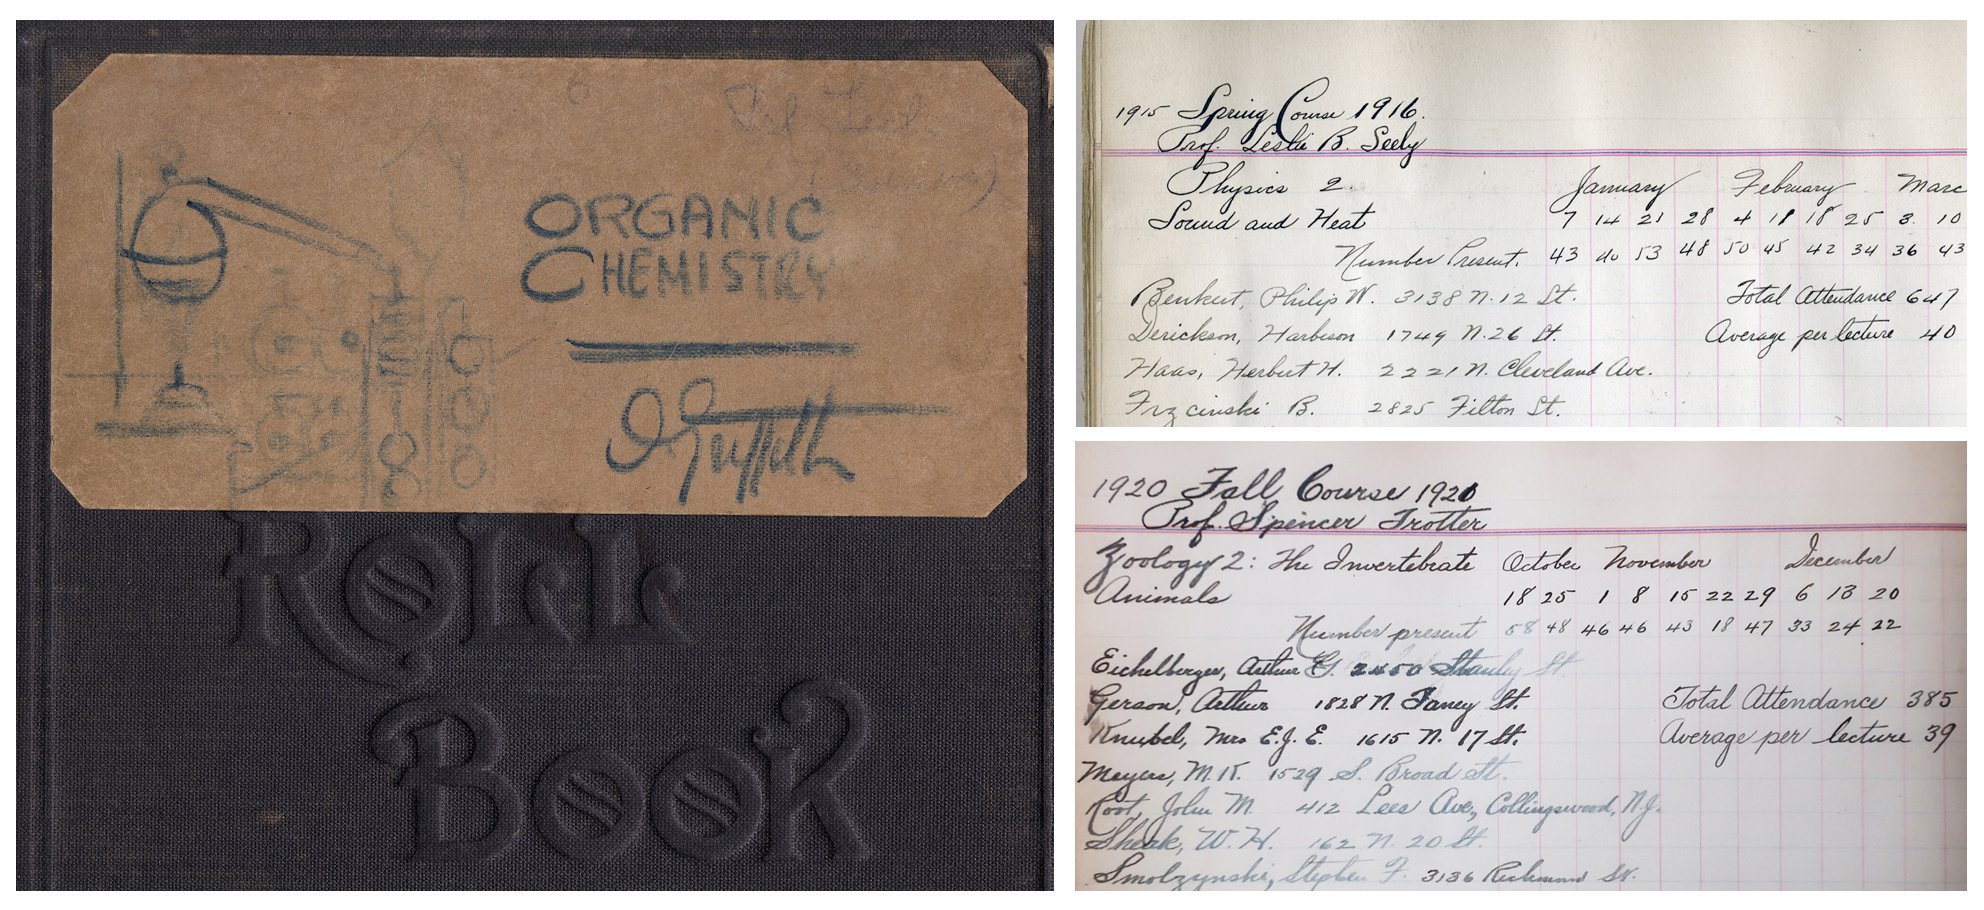 ORGANIC
CHEMISTRY
ROLL
BOOK
1915 Spring Course 1916.
Prof. Leslie B. Seely
Physics 2. January February Marc
Sound and Heat 7 14 21 28 4 11 18 25 3. 10
Number Present. 43 40 53 48 50 45 42 34 36 43
Benkert, Philip W. 3138 N. 12 St. Total Attendance 647
Derickson, Harbison 1749 N. 26 St. Average per lecture 40
Haas, Herbert H. 2221 N. Cleveland Ave.
Frzcinski B. 2825 Filton St.
1920 Fall Course 1920
Prof. Spencer Trotter
Zoology 2: The Invertebrate October November December
Animals 18 25 1 8 15 22 29 6 13 20
Number present 58 48 46 46 43 18 47 33 24 22
Eichelberger, Arthur G. 2450 Stanly St.
Gerson, Arthur 1828 N. Faney St. Total Attendance 385
Knubel, Mrs E.J.E. 1615 N. 17 St. Average per lecture 39
Meyers, M.K. 1529 S. Broad St.
Root, John M. 412 Lees Ave., Collingswood, N.J.
Shenk, W.H. 162 N. 20 St.
Smolzynski, Stephen F. 3136 Richmond St.